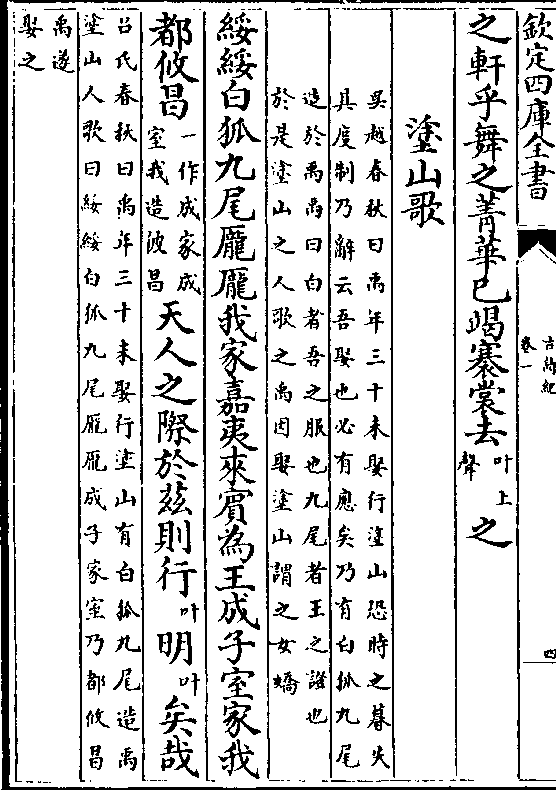 欽定四庫全書
古詩紀
卷一
四
之軒乎舞之菁華已竭褰裳去叶上聲之
塗山歌
吳越春秋曰禹年三十未娶行塗山恐時之暮失
其度制乃辭云吾娶也必有應矣乃有白狐九尾
造於禹禹曰白者吾之服也九尾者王之證也
於是塗山之人歌之禹因娶塗山謂之女嬌
綏綏白狐九尾龎龎我家嘉夷來賓為王成子室家我
都攸昌一作成家成室我造彼昌天人之際於兹則行叶明叶矣哉
吕氏春秋曰禹年三十未娶行塗山有白狐九尾造禹
塗山人歌曰綏綏白狐九尾龎龎成子家室乃都攸昌
禹遂
娶之